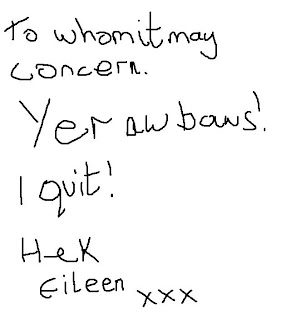 To whomit may
concern.
Yer aw baws!
I quit!
HeK
Eileen xxx